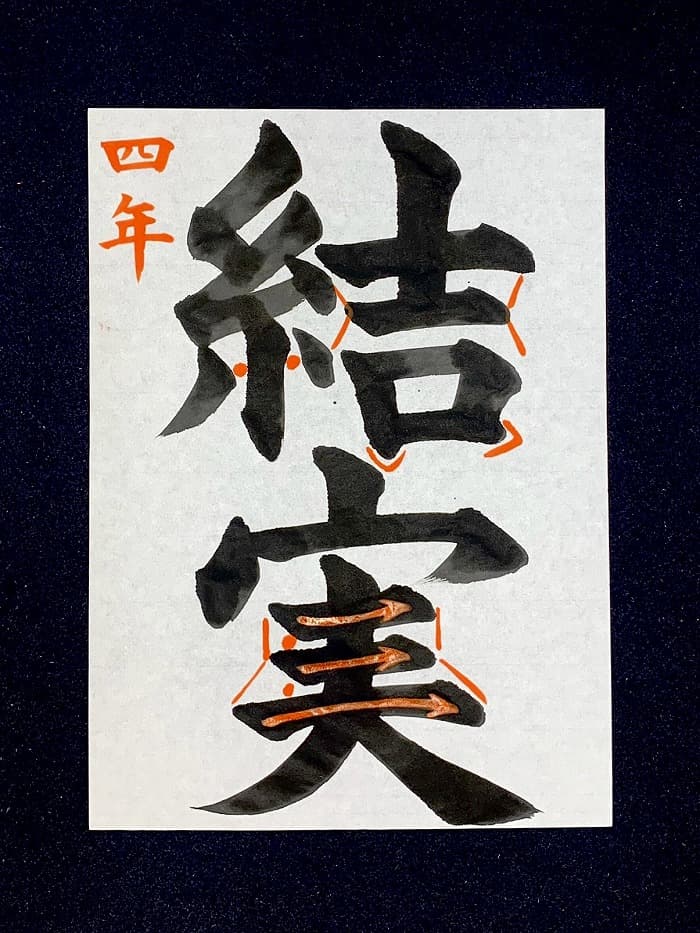 四年
結実